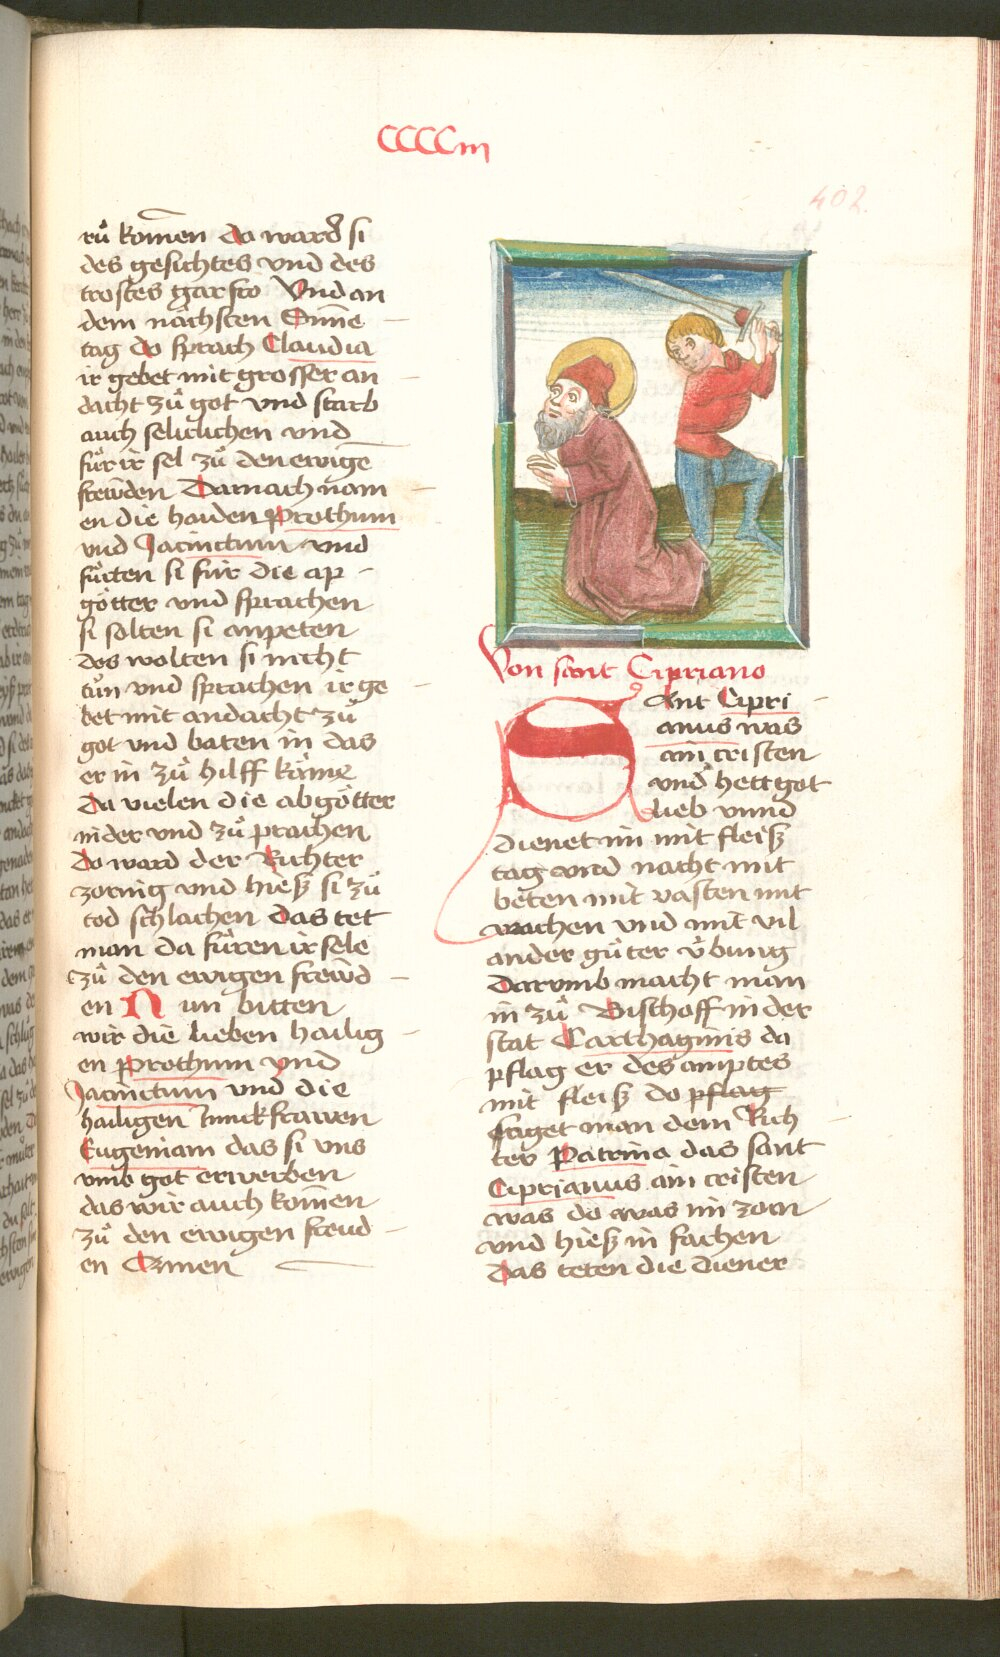 CCCCm
402
zů kom̄en da ward si
des gesichtes vnd des
trostes gar fro Vnd an
dem nächsten Sun̄e
tag do sprach Claudia
ir gebet mit grosser an
dacht zů got vnd starb
auch seliclichen vnd
fůr ir sel zů den ewige
frewden Darnach nam
en die haiden Prothum
vnd Jacinctum vnd
fůrten si für die ap
götter vnd sprachen
si solten si anpeten
des wolten si nicht
tůn vnd sprachen ir ge
bet mit andacht zů
got vnd baten in das
er in zů hilff käme
Da vielen die abgötter
nider vnd zů prachen
Do ward der Richter
zornig vnd hieß si zů
tod schlachen das tet
man da fůren ir sele
zů den ewigen frewd
en Nun bitten
wir die lieben hailig
en Prothum vnd
Jacinctum vnd die
hailigen Junckfrawen
Eugeniam das si vns
vmb got erwerben
das wir auch kom̄en
zů den ewigen freud
en Amen
Von sant Cipriano
Sant Cipri
anus was
ain cristen
vnd hett got
lieb vnnd
dienet im mit fleiß
tag vnd nacht mit
beten mit vasten mit
wachen vnd mit vil
ander gůter ůbung
Darvmb macht man
in zů Bischoff in der
stat Carthaginis da
pflag er des amptes
mit fleiß do pflag
saget man dem Rich
ter Patrina das sant
Ciprianus ain cristen
was do was im zorn
vnd hieß in fachen
Das teten die Diener